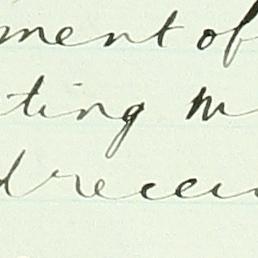 ment of
ting m
d recei